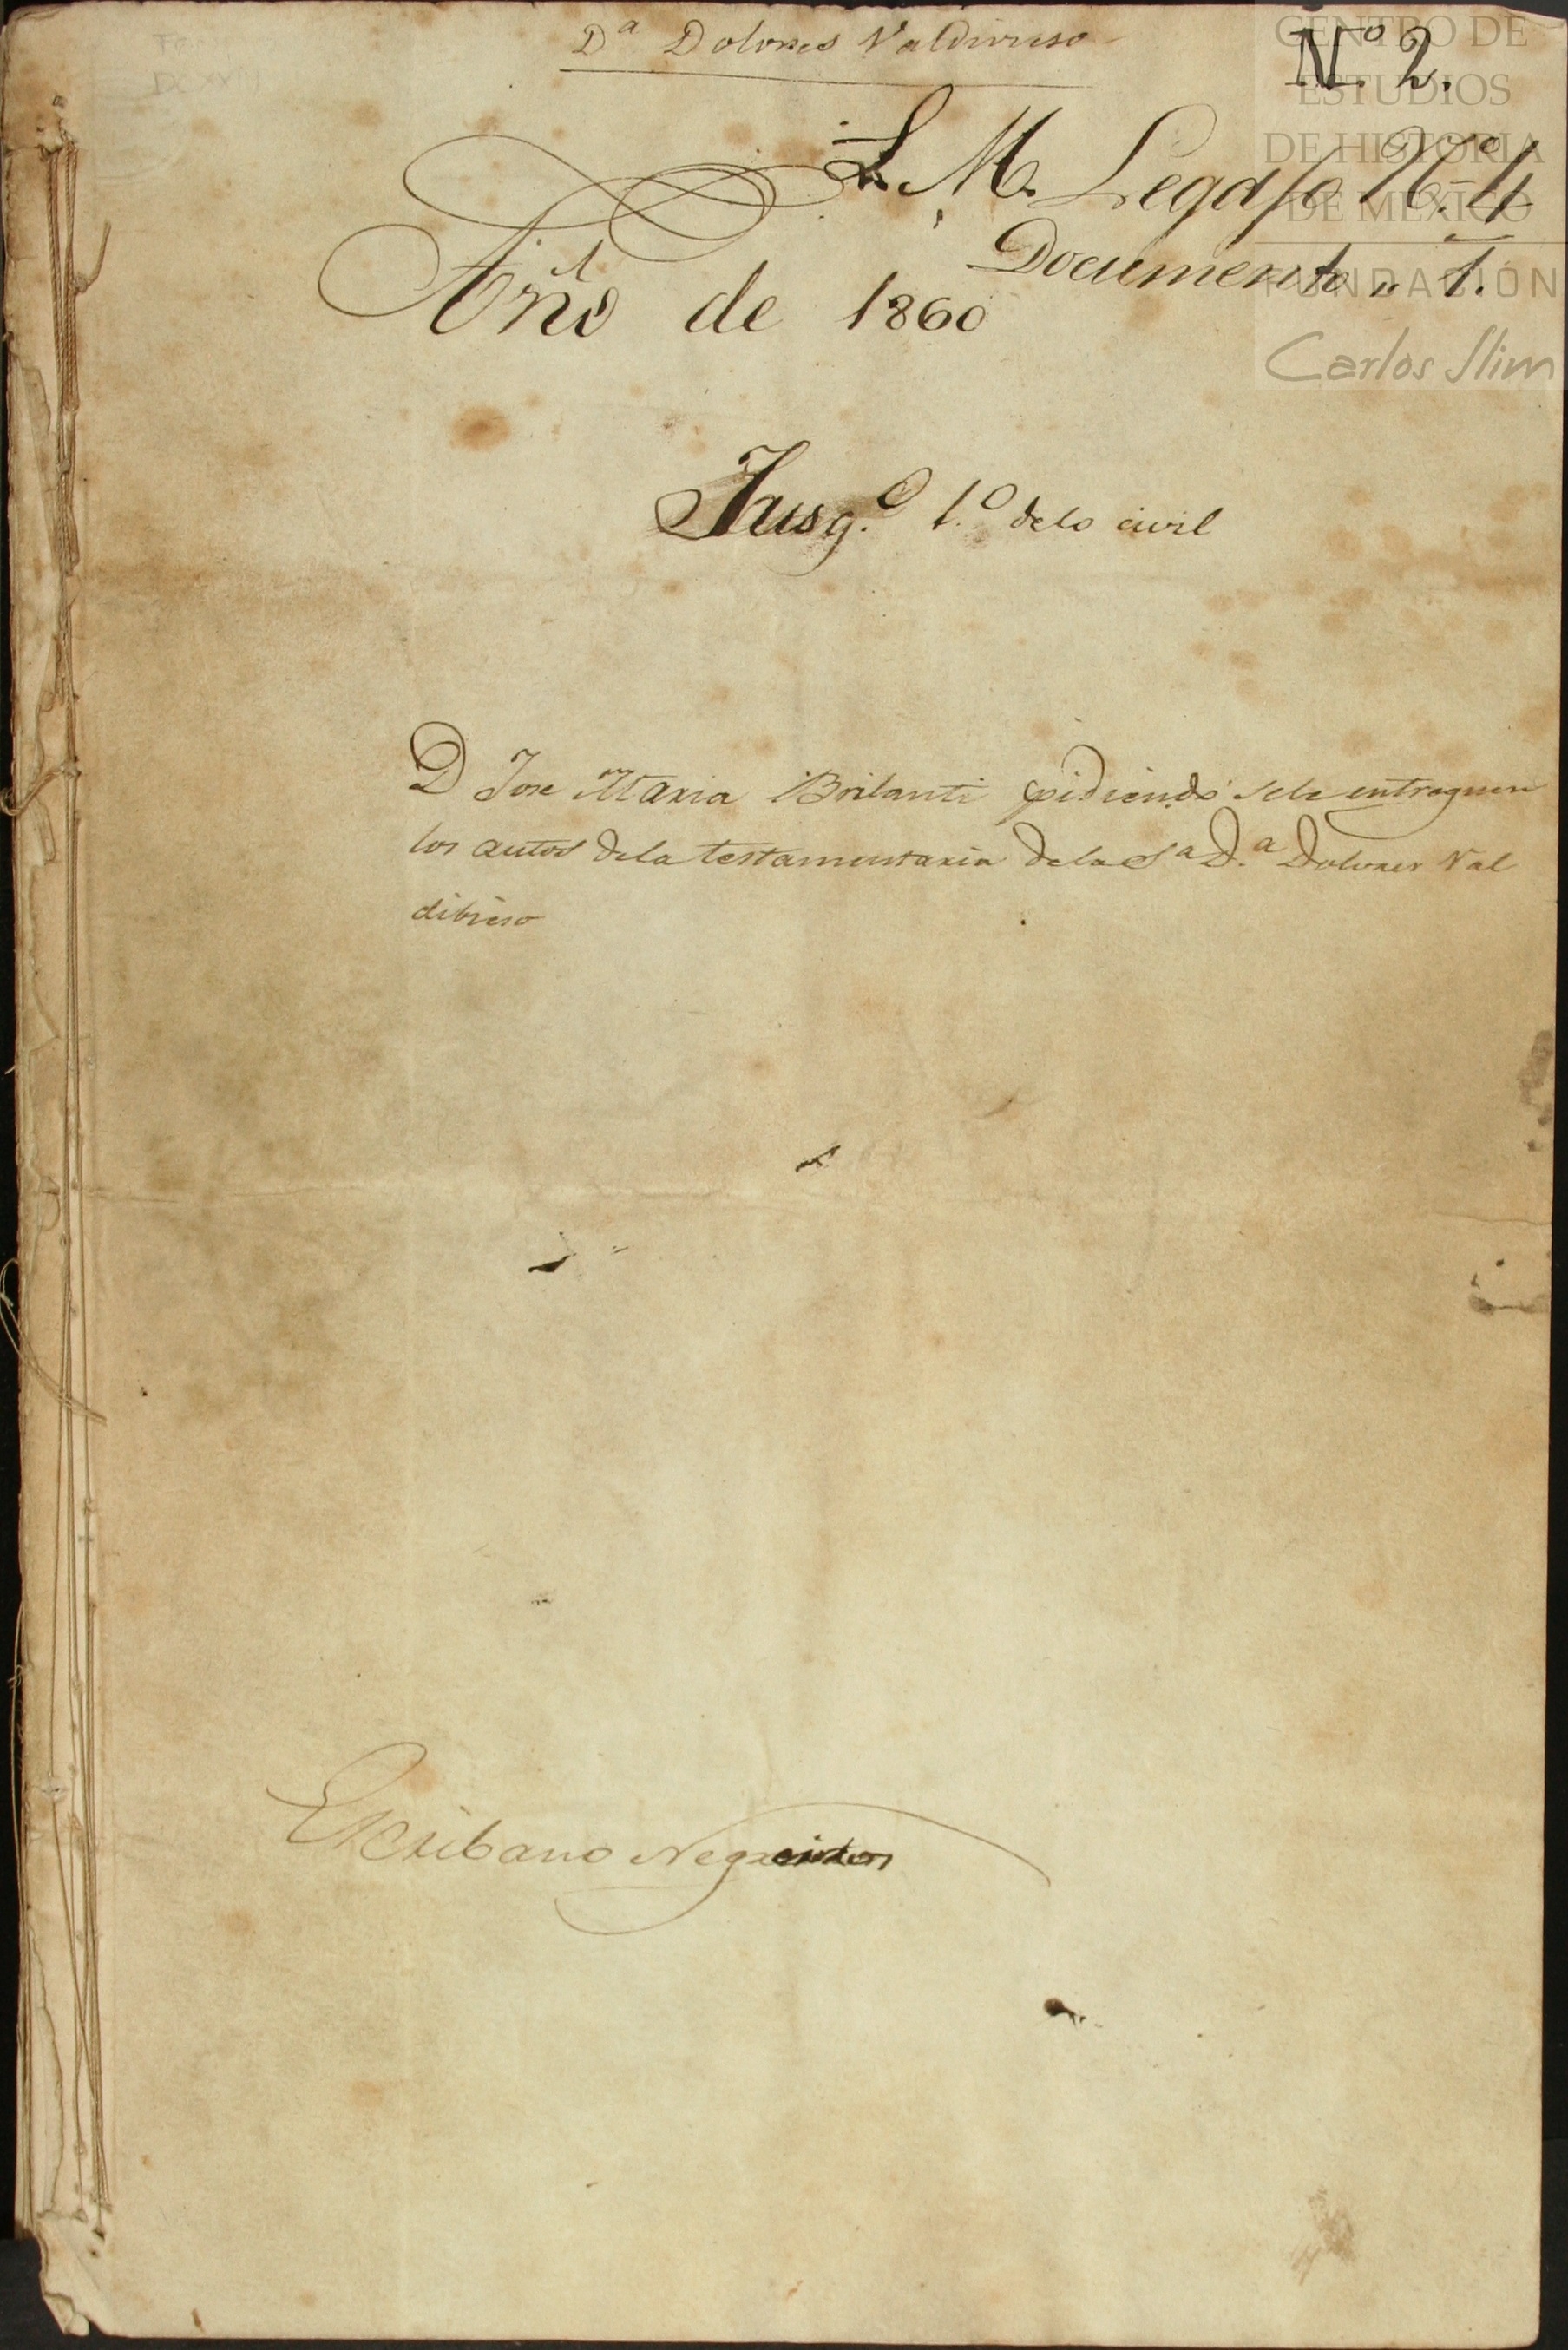 Dª Dolores Valdivieso
Nº 2.
CENTRO DE
ESTUDIOS
DE HISTORIA
DE MÉXICO
FUNDACIÓN
Carlos Slim
L. M. Legajo Nº 4
Documento " 1.
Año de 1860
Jusgº. 1.º delo civil
D Jose Maria Brilanti pidiendo sele entreguen
los autos dela testamentaria dela Sª D.ª Dolores Val
dibieso
Escribano Negreiros